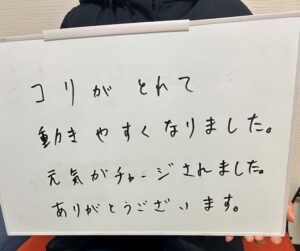 コリがとれて
動きやすくなりました。
元気がチャージされました。
ありがとうございます。